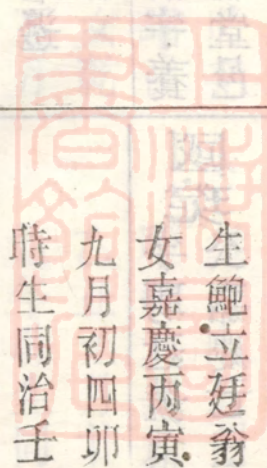 生鮑立廷翁
女嘉慶丙寅
九月初四卯
時生同治壬